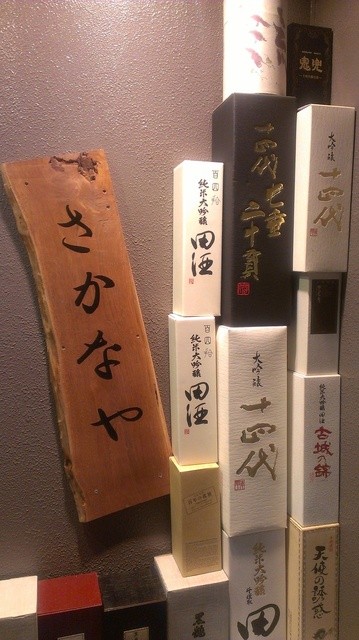 さかなや
百四拾
純米大吟醸
田酒
百四拾
純米大吟醸
田酒
十四代
七垂二十貫
大吟醸
十四代
鬼兜
大吟醸
十四代
純米大吟醸 田酒
古城の錦
天使の誘惑
純米大吟醸
田